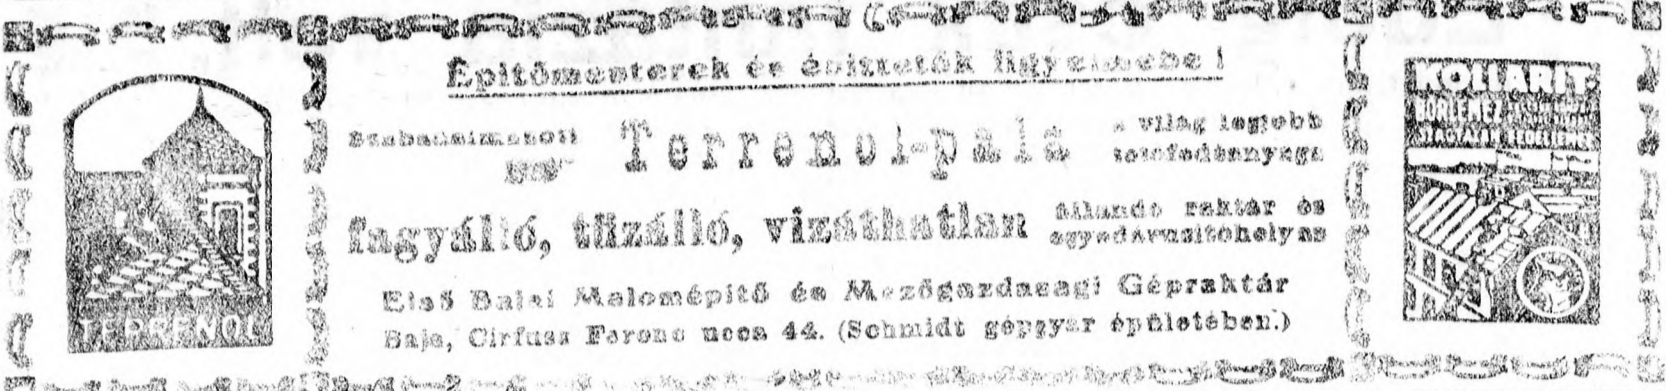 Építőmesterek és építtetők figyelmébe!
Szabadalmazott
Terrenol-pala
a világ legjobb
tetőfedőanyaga
fagyálló, tűzálló, vizáthatlan
állandó raktár és
egyedárusitóhelyas
Első Bajai Malomépitő és Mezőgazdasagi Gépraktár
Baja, Cirfusz Ferenc ucca 44. (Schmidt gépgyar épületében.)
TERRENOL
KOLLARIT-
BŐRLEMEZ